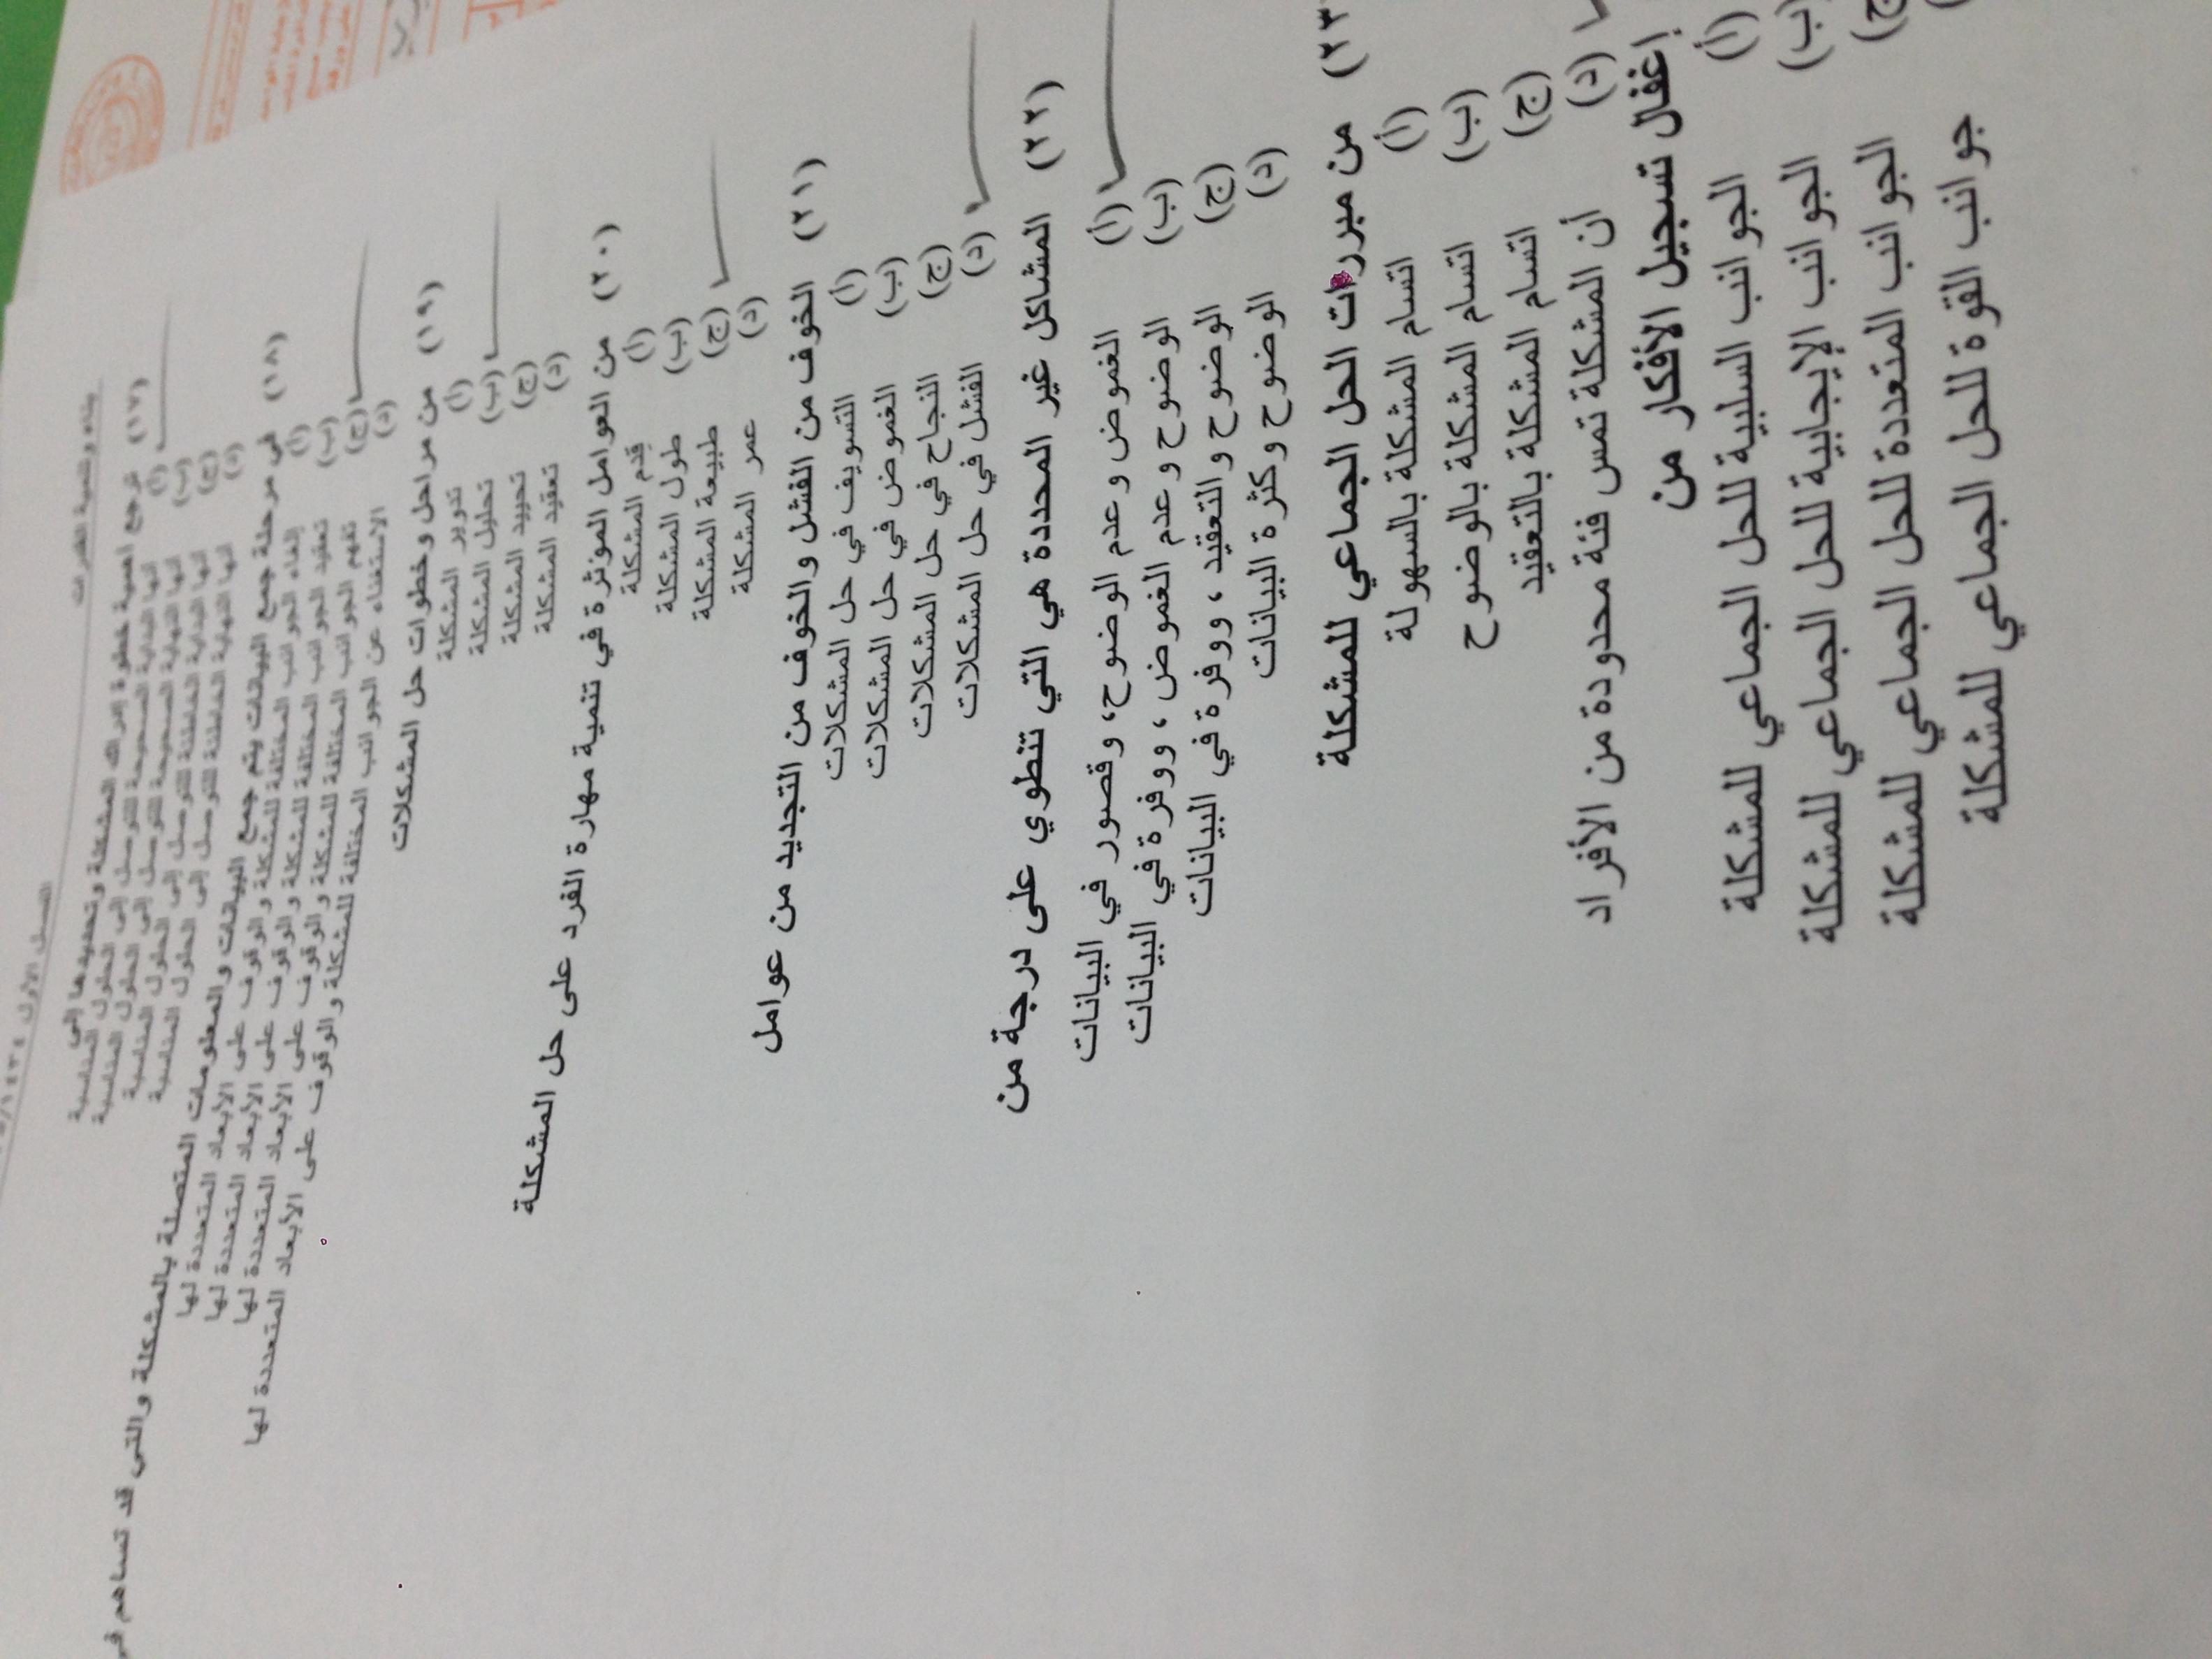 بناء وتنمية القدرات
(١٧) ترجع أهمية خطوة إدراك المشكلة وتحديدها إلى
(أ) أنها البداية الصحيحة للتوصل إلى الحلول المناسبة
(ب) أنها النهاية الصحيحة للتوصل إلى الحلول المناسبة
(ج) أنها البداية الخاطئة للتوصل إلى الحلول المناسبة
(د) أنها النهاية الخاطئة للتوصل إلى الحلول المناسبة
(١٨) في مرحلة جمع البيانات يتم جمع البيانات والمعلومات المتصلة بالمشكلة والتي قد تساهم في
(أ) إلغاء الجوانب المختلفة للمشكلة والوقوف على الأبعاد المتعددة لها
(ب) تعقيد الجوانب المختلفة للمشكلة والوقوف على الأبعاد المتعددة لها
(ج) تفهم الجوانب المختلفة للمشكلة والوقوف على الأبعاد المتعددة لها
(د) الاستغناء عن الجوانب المختلفة للمشكلة والوقوف على الأبعاد المتعددة لها
(١٩) من مراحل وخطوات حل المشكلات
(أ) تدوير المشكلة
(ب) تحليل المشكلة
(ج) تحييد المشكلة
(د) تعقيد المشكلة
(٢٠) من العوامل المؤثرة في تنمية مهارة الفرد على حل المشكلة
(أ) قدم المشكلة
(ب) طول المشكلة
(ج) طبيعة المشكلة
(د) عمر المشكلة
(٢١) الخوف من الفشل والخوف من التجديد من عوامل
(أ) التسويف في حل المشكلات
(ب) الغموض في حل المشكلات
(ج) النجاح في حل المشكلات
(د) الفشل في حل المشكلات
(٢٢) المشاكل غير المحددة هي التي تنطوي على درجة من
(أ) الغموض وعدم الوضوح، وقصور في البيانات
(ب) الوضوح وعدم الغموض ، ووفرة في البيانات
(ج) الوضوح والتعقيد ، ووفرة في البيانات
(د) الوضوح وكثرة البيانات
(٢٣) من مبررات الحل الجماعي للمشكلة
(أ) اتسام المشكلة بالسهولة
(ب) اتسام المشكلة بالوضوح
(ج) اتسام المشكلة بالتعقيد
(د) أن المشكلة تمس فئة محدودة من الأفراد
إغفال تسجيل الأفكار من
(أ) الجوانب السلبية للحل الجماعي للمشكلة
(ب) الجوانب الإيجابية للحل الجماعي للمشكلة
(ج) الجوانب المتعددة للحل الجماعي للمشكلة
جوانب القوة للحل الجماعي للمشكلة